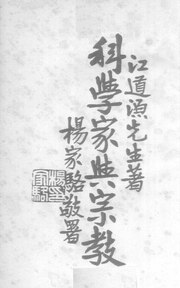 江道源先生著
科學家與宗教
楊家駱敬署